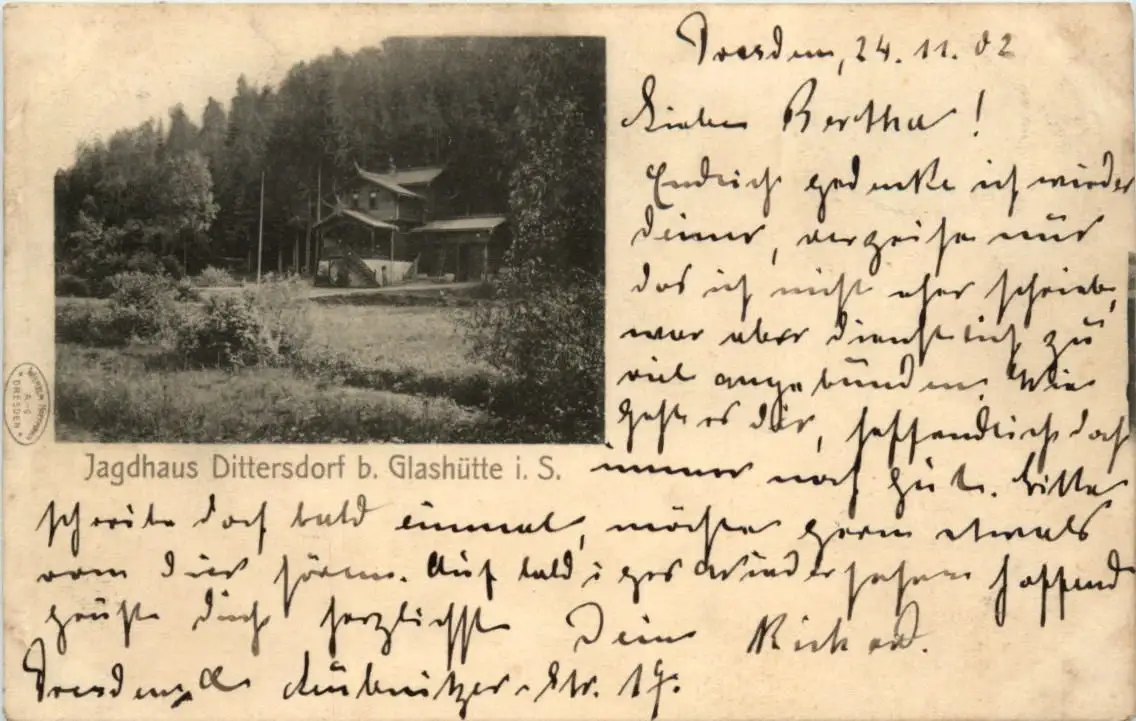 Dresden, 24. 11. 02
Lieben Bertha!
Endlich gedenke ich wieder
deiner, verzeihe nur
das ich nicht eher schrieb,
war aber dienstlich zu
viel angebunden. Wie
geht es dir, hoffendlich doch
immer noch gut. Bitte
schreibe doch bald einmal, möchte gern etwas
von dir hören. Auf baldiges Wiedersehen hoffend
grüßt dich herzlichst Dein Richard.
Dresden, Str. 17.
Jagdhaus Dittersdorf b. Glashütte i. S.
DRESDEN